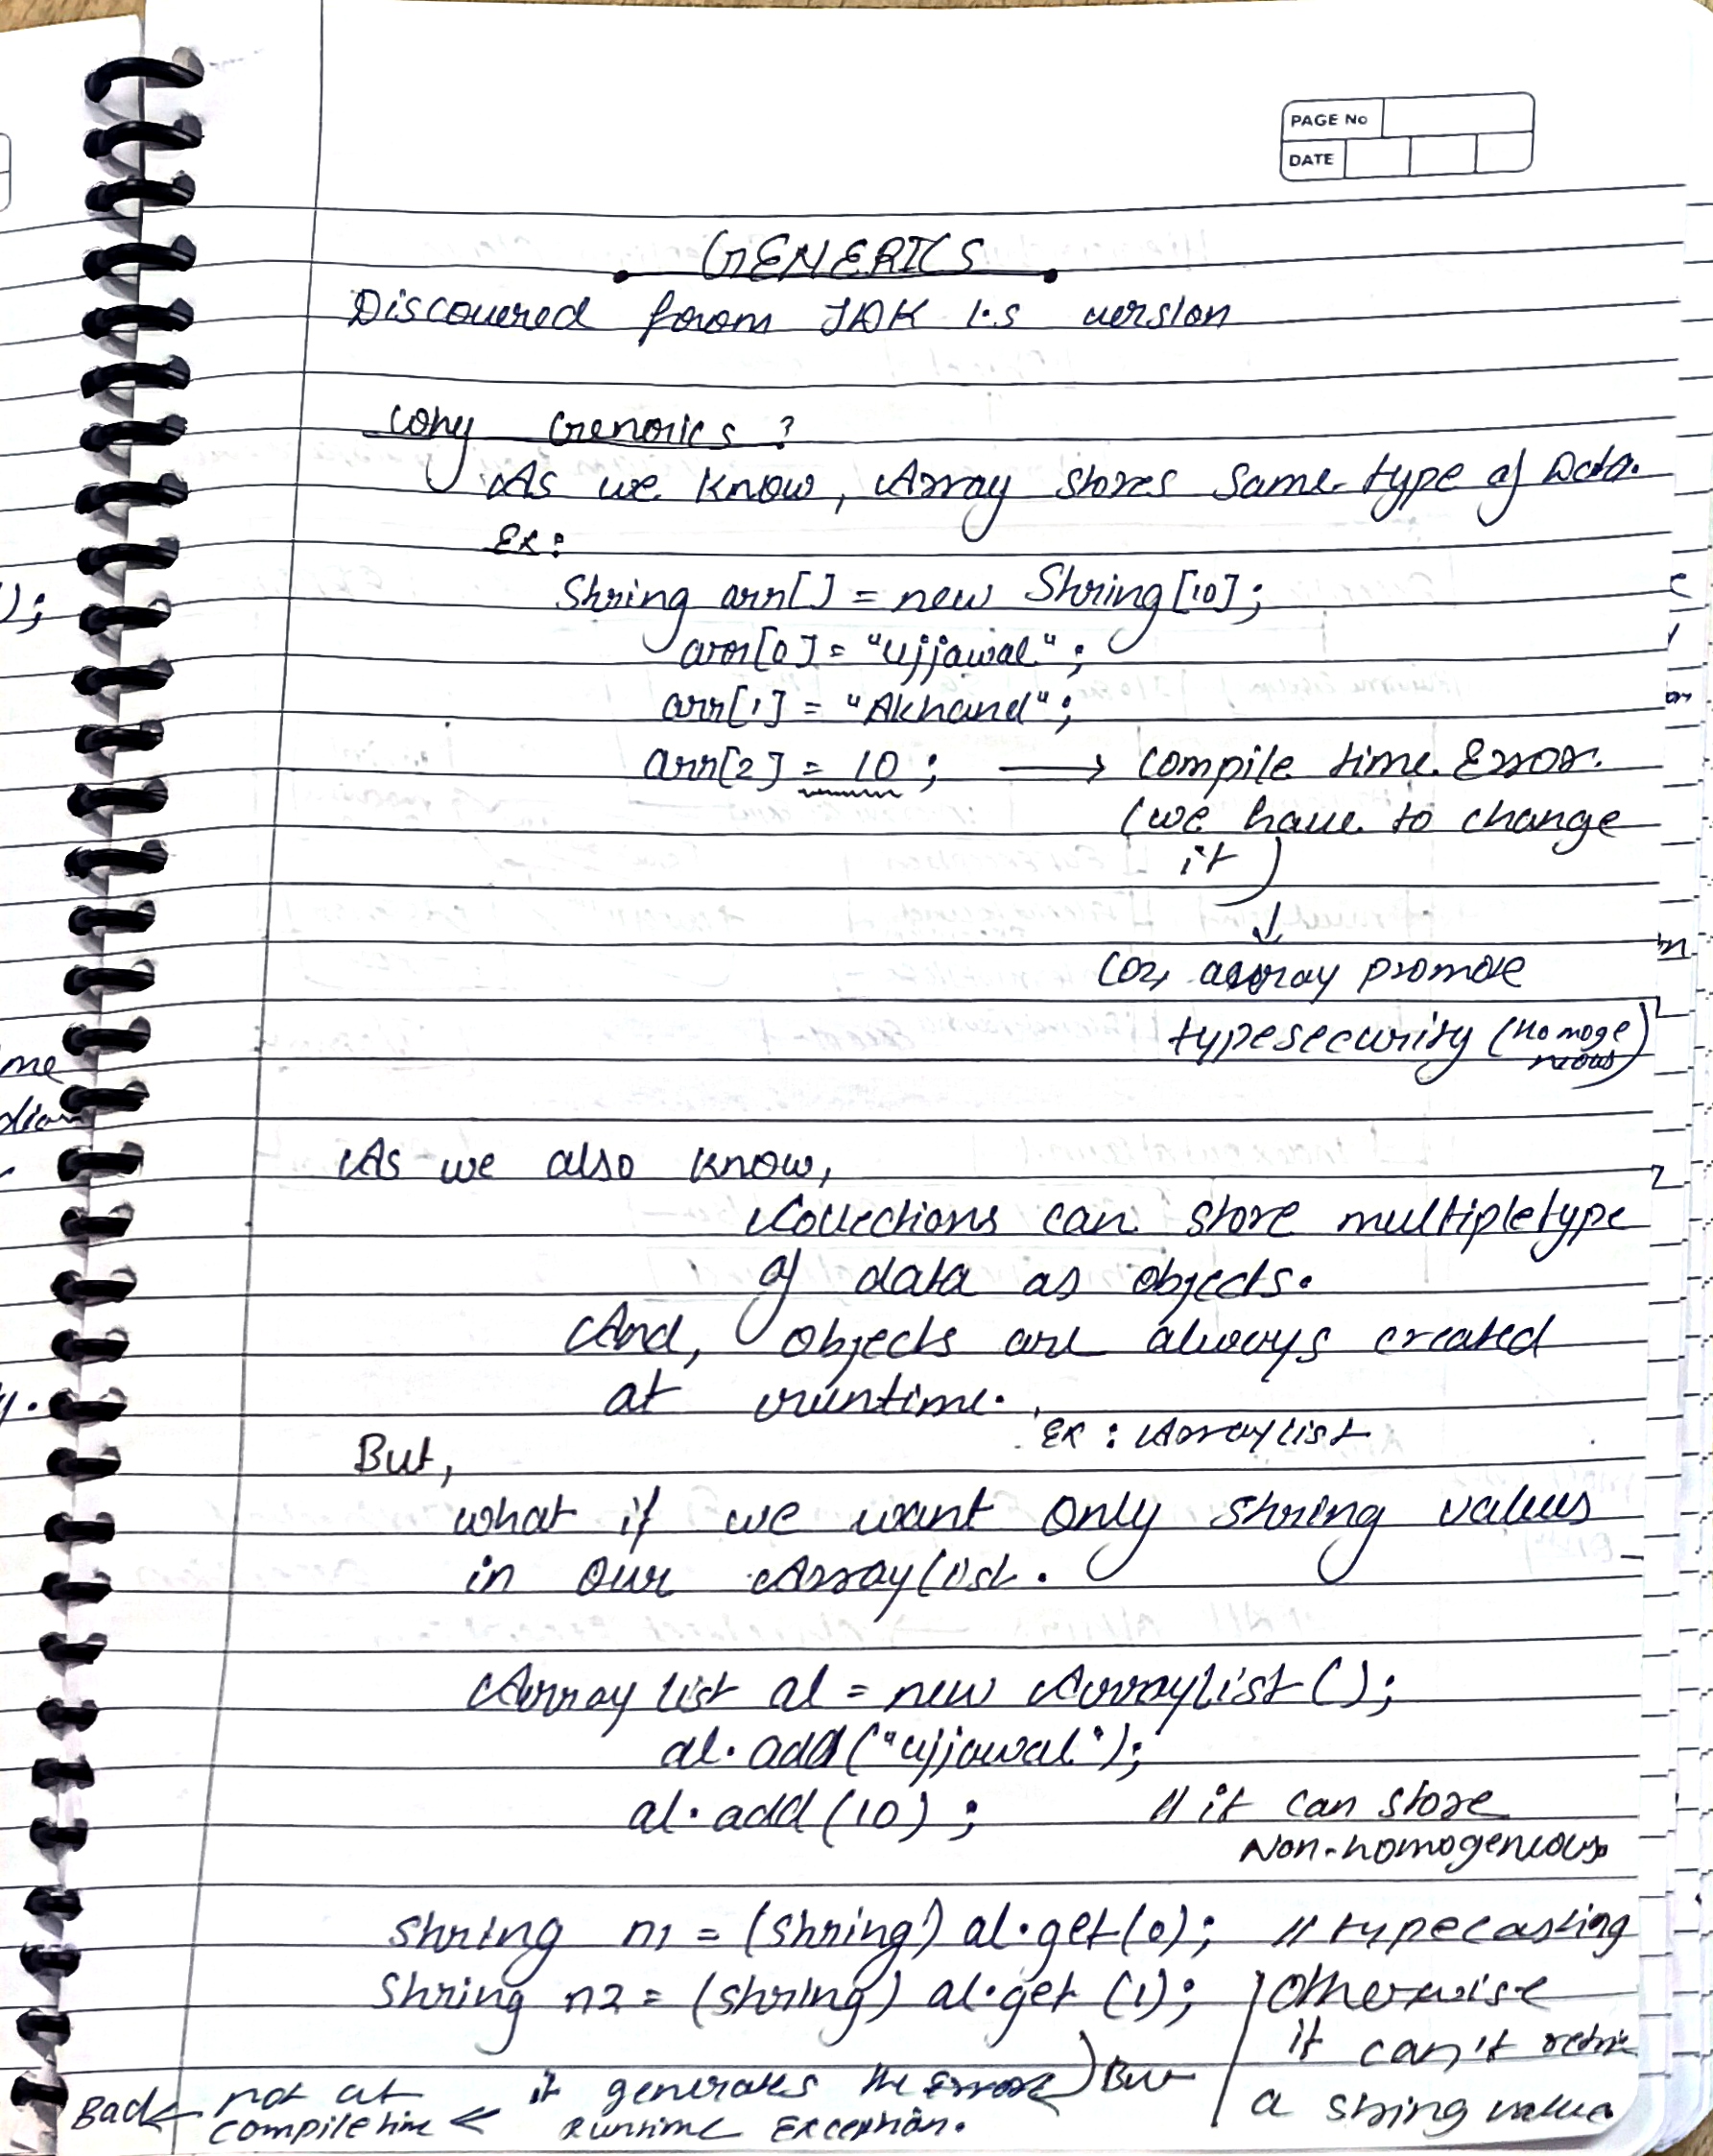 PAGE No
DATE
GENERICS
Discovered from JDK 1.5 version
Why Generics?
As we know, Array stores same type of Data.
Ex:
String arr[] = new String[10];
arr[0] = "Ujjawal";
arr[1] = "Akhand";
arr[2] = 10; → compile time Error.
(we have to change
it)
↓
Coz, array promote
typesecurity (Homoge
neous)
As we also know,
Collections can store multipletype
of data as objects.
And, objects are always created
at runtime.
Ex: Arraylist
But,
what if we want only string values
in our Arraylist.
Array list al = new Arraylist();
al.add("ujjawal");
al.add(10); // it can store
Non-homogenious
String n1 = (string) al.get(0); // typecasting
String n2 = (string) al.get(1); otherwise
it can't retrive
a string value
But
it generates the Error)
Runtime Exception.
← not at
compile time
Bad ←
);
me
y.